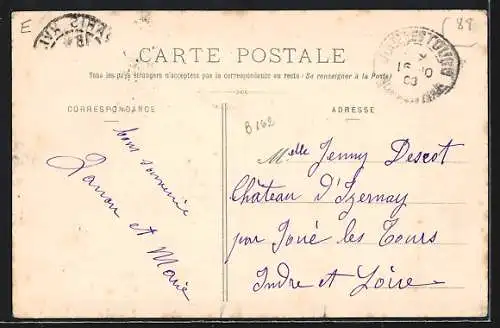 E
88
CARTE POSTALE
Tous les pays étrangers n'acceptent pas la correspondance au recto (Se renseigner à la Poste)
CORRESPONDANCE
ADRESSE
B 162
bons souvenirs
Ramon et Marie
Melle Jenny Descot
Château d'Izernay
par Joué les Tours
Indre et Loire